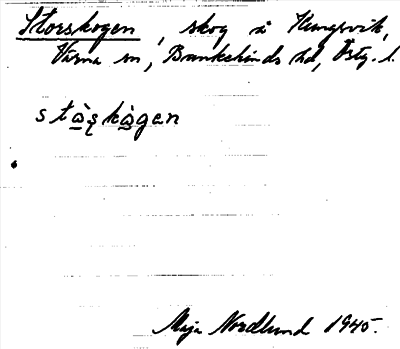 Storskogen, skog å Hungsvik,
Värna sn, Bankekinds hd, Östg. l.
stà̱ʂkà̱gen
Maja Nordlund 1945.